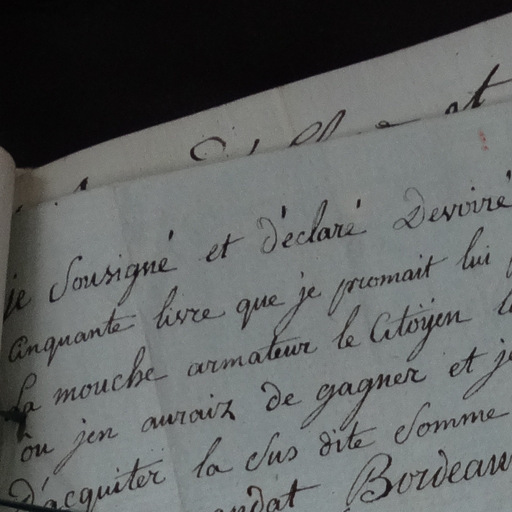 je Sousigné et déclaré Devoiré
Cinquante livre que je promait lui
La mouche armateur le Citöyen
òu jen auraiz de gagner et je
D'acquiter la sus dite somme
Bordeaux